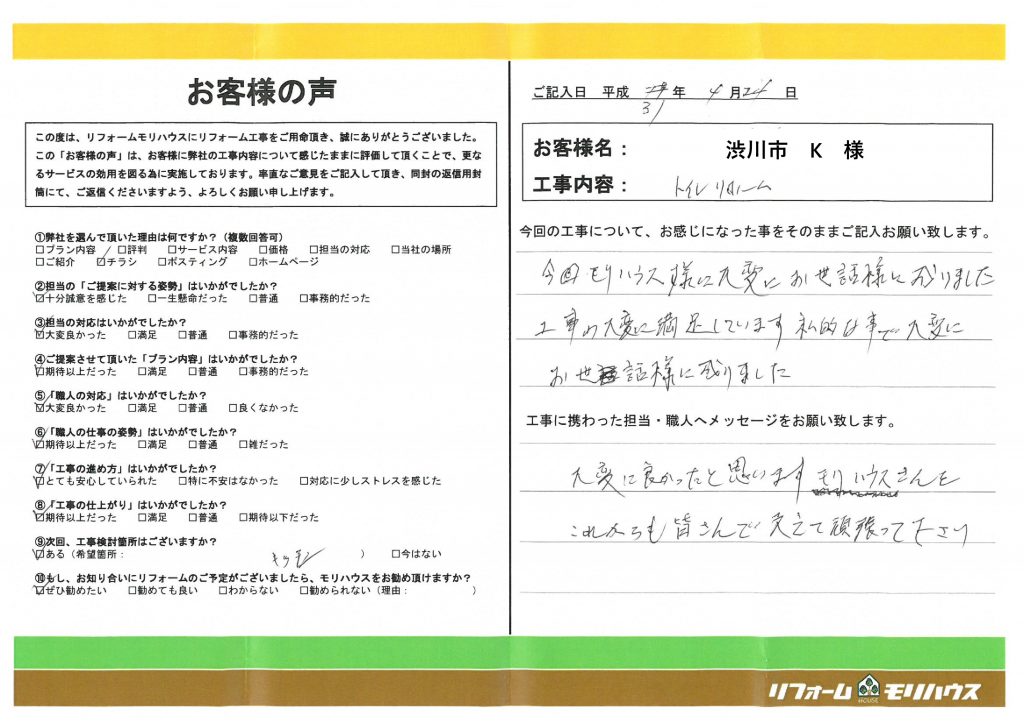 お客様の声
この度は、リフォームモリハウスにリフォーム工事をご用命頂き、誠にありがとうございました。
この「お客様の声」は、お客様に弊社の工事内容について感じたままに評価して頂くことで、更な
るサービスの効用を図る為に実施しております。率直なご意見をご記入して頂き、同封の返信用封
筒にて、ご返信くださいますよう、よろしくお願い申し上げます。
①弊社を選んで頂いた理由は何ですか？（複数回答可）
□プラン内容 □評判 □サービス内容 □価格 □担当の対応 □当社の場所
□ご紹介 ☑チラシ □ポスティング □ホームページ
②担当の「ご提案に対する姿勢」はいかがでしたか？
☑十分誠意を感じた □一生懸命だった □普通 □事務的だった
③担当の対応はいかがでしたか？
☑大変良かった □満足 □普通 □事務的だった
④ご提案させて頂いた「プラン内容」はいかがでしたか？
☑期待以上だった □満足 □普通 □事務的だった
⑤「職人の対応」はいかがでしたか？
☑大変良かった □満足 □普通 □良くなかった
⑥「職人の仕事の姿勢」はいかがでしたか？
☑期待以上だった □満足 □普通 □雑だった
⑦「工事の進め方」はいかがでしたか？
☑とても安心していられた □特に不安はなかった □対応に少しストレスを感じた
⑧「工事の仕上がり」はいかがでしたか？
☑期待以上だった □満足 □普通 □期待以下だった
⑨次回、工事検討箇所はございますか？
☑ある（希望箇所： キッチン ） □今はない
⑩もし、お知り合いにリフォームのご予定がございましたら、モリハウスをお勧め頂けますか？
☑ぜひ勧めたい □勧めても良い □わからない □勧められない（理由： ）
ご記入日 平成 31 年 4 月 24 日
お客様名： 渋川市 K 様
工事内容： トイレリホーム
今回の工事について、お感じになった事をそのままご記入お願い致します。
今回モリハウス様に大変にお世話様に成りました
工事の大変に満足しています 私的な事で大変に
お世話様に成りました
工事に携わった担当・職人へメッセージをお願い致します。
大変に良かったと思います モリハウスさんを
これからも皆さんで支えて頑張って下さい
リフォーム モリハウス
HOUSE